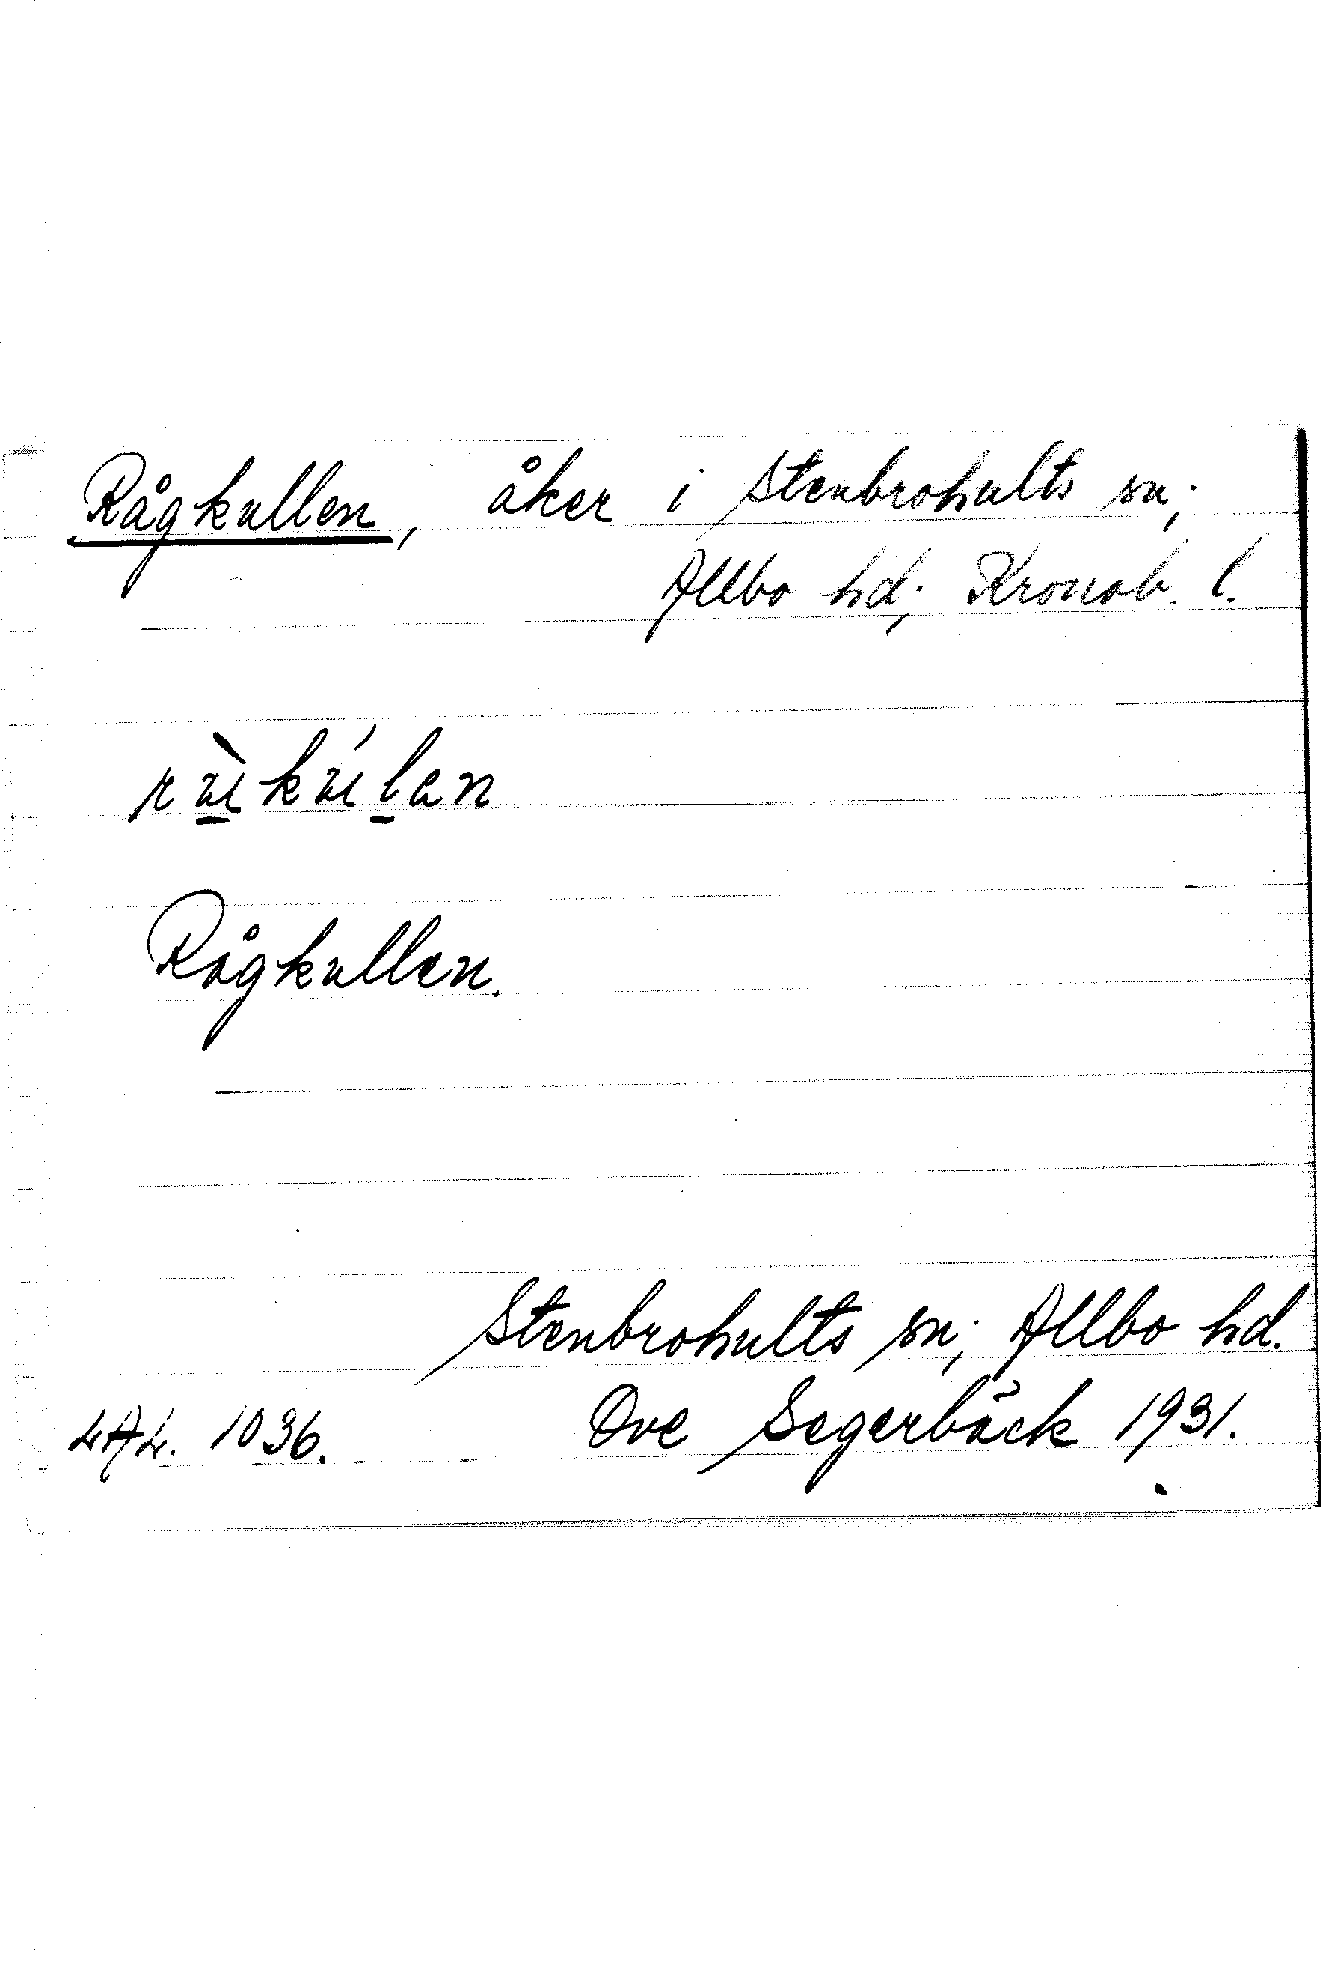 Rågkullen, åker i Stenbrohults sn;
Allbo hd; Kronob. l.
rùkúlen
Rågkullen.
Stenbrohults sn; Allbo hd.
LAL. 1036. Ove Segerbäck 1931.